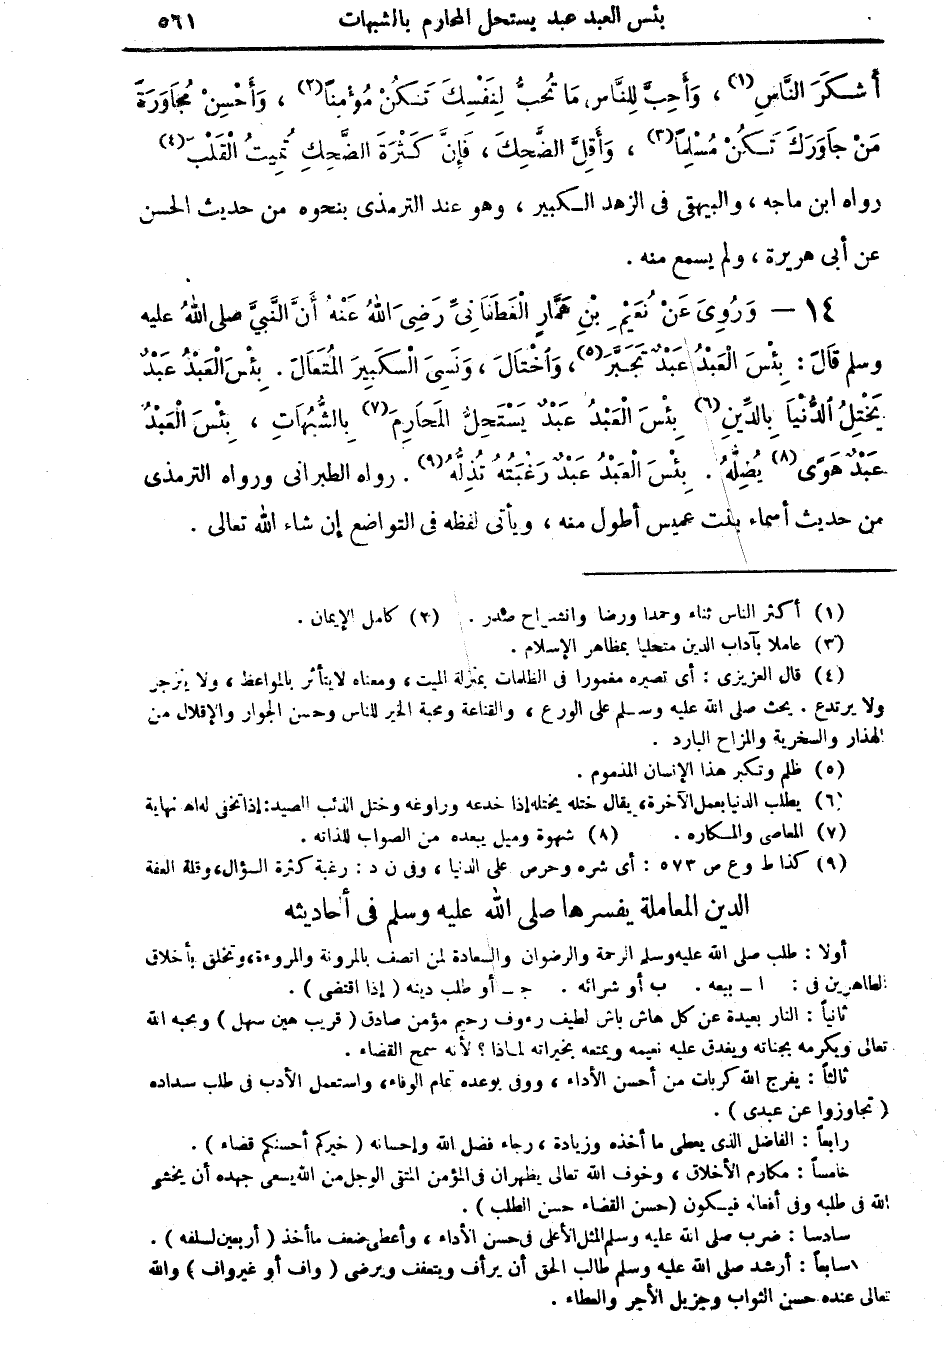 بئس العبد عبد يستحل المحارم بالشبهات ٥٦١
أَشْكَرَ النَّاسِ(١) ، وَأَحِبَّ لِلنَّاسِ مَا تُحِبُّ لِنَفْسِكَ تَكُنْ مُؤْمِناً(٢) ، وَأَحْسِنْ مُجَاوَرَةَ
مَنْ جَاوَرَكَ تَكُنْ مُسْلِماً(٣) ، وَأَقِلَّ الضَّحِكَ ، فَإِنَّ كَثْرَةَ الضَّحِكِ تُمِيتُ الْقَلْبَ(٤)
رواه ابن ماجه ، والبيهقى فى الزهد الكبير ، وهو عند الترمذى بنحوه من حديث الحسن
عن أبى هريرة ، ولم يسمع منه .
١٤ — وَرُوِىَ عَنْ نُعَيْمِ بْنِ هَمَّارٍ الْغَطَفَانِىِّ رَضِىَ اللهُ عَنْهُ أَنَّ النَّبِيَّ صلى اللهُ عليه
وسلم قَالَ : بِئْسَ الْعَبْدُ عَبْدٌ تَجَبَّرَ(٥)، وَاخْتَالَ ، وَنَسِىَ الْكَبِيرَ الْمُتَعَالَ . بِئْسَ الْعَبْدُ عَبْدٌ
يَخْتِلُ الدُّنْيَا بِالدِّينِ(٦) بِئْسَ الْعَبْدُ عَبْدٌ يَسْتَحِلُّ الْمَحَارِمَ(٧) بِالشُّبُهَاتِ ، بِئْسَ الْعَبْدُ
عَبْدٌ هَوًى(٨) يُضِلُّهُ . بِئْسَ الْعَبْدُ عَبْدٌ رَغْبَتُهُ تُذِلُّهُ(٩) . رواه الطبرانى ورواه الترمذى
من حديث أسماء بنت عميس أطول منه ، ويأتى لفظه فى التواضع إن شاء الله تعالى .
(١) أكثر الناس ثناء وحمدا ورضا وانشراح صدر . (٢) كامل الإيمان .
(٣) عاملا بآداب الدين متحليا بمظاهر الإسلام .
(٤) قال العزيزى : أى تصيره مغمورا فى الظلمات بمنزلة الميت ، ومعناه لايتأثر بالمواعظ ، ولا ينزجر
ولا يرتدع . يحث صلى الله عليه وسلم على الورع ، والقناعة ومحبة الخير للناس وحسن الجوار والإقلال من
الهذار والسخرية والمزاح البارد .
(٥) ظلم وتكبر هذا الإنسان المذموم .
(٦) يطلب الدنيا بعمل الآخرة، يقال ختله يختله إذا خدعه وراوغه وختل الذئب الصيد: إذا تخفى له اه نهاية
(٧) المعاصى والمكاره . (٨) شهوة وميل يبعده من الصواب للذاته .
(٩) كذا ط و ع ص ٥٧٣ : أى شره وحرص على الدنيا ، وفى ن د : رغبة كثرة السؤال، وقلة العفة
الدين المعاملة يفسرها صلى الله عليه وسلم فى أحاديثه
أولا : طلب صلى الله عليه وسلم الرحمة والرضوان والسعادة لمن اتصف بالمرونة والمروءة، وتخلق بأخلاق
الطاهرين فى : ا ـ بيعه . ب أو شرائه . جـ ـ أو طلب دينه ( إذا اقتضى ) .
ثانياً : النار بعيدة عن كل هاش باش لطيف رءوف رحيم مؤمن صادق ( قريب هين سهل ) ويحبه الله
تعالى ويكرمه بجناته ويغدق عليه نعيمه ويمتعه بخيراته لماذا ؟ لأنه سمح القضاء .
ثالثاً : يفرج الله كربات من أحسن الأداء ، ووفى بوعده تمام الوفاء، واستعمل الأدب فى طلب سداده
( تجاوزوا عن عبدى ) .
رابعاً : الفاضل الذى يعطى ما أخذه وزيادة ، رجاء فضل الله وإحسانه ( خيركم أحسنكم قضاء ) .
خامساً : مكارم الأخلاق ، وخوف الله تعالى يظهران فى المؤمن المتقى الوجل من الله يسعى جهده أن يخشى
الله فى طلبه وفى أفعاله فيكون (حسن القضاء حسن الطلب ) .
سادسا : ضرب صلى الله عليه وسلم المثل الأعلى فى حسن الأداء ، وأعطى ضعف ما أخذ ( أربعين لسلفه ) .
سابعاً : أرشد صلى الله عليه وسلم طالب الحق أن يرأف ويتعفف ويرضى ( واف أو غير واف ) والله
تعالى عنده حسن الثواب وجزيل الأجر والعطاء .